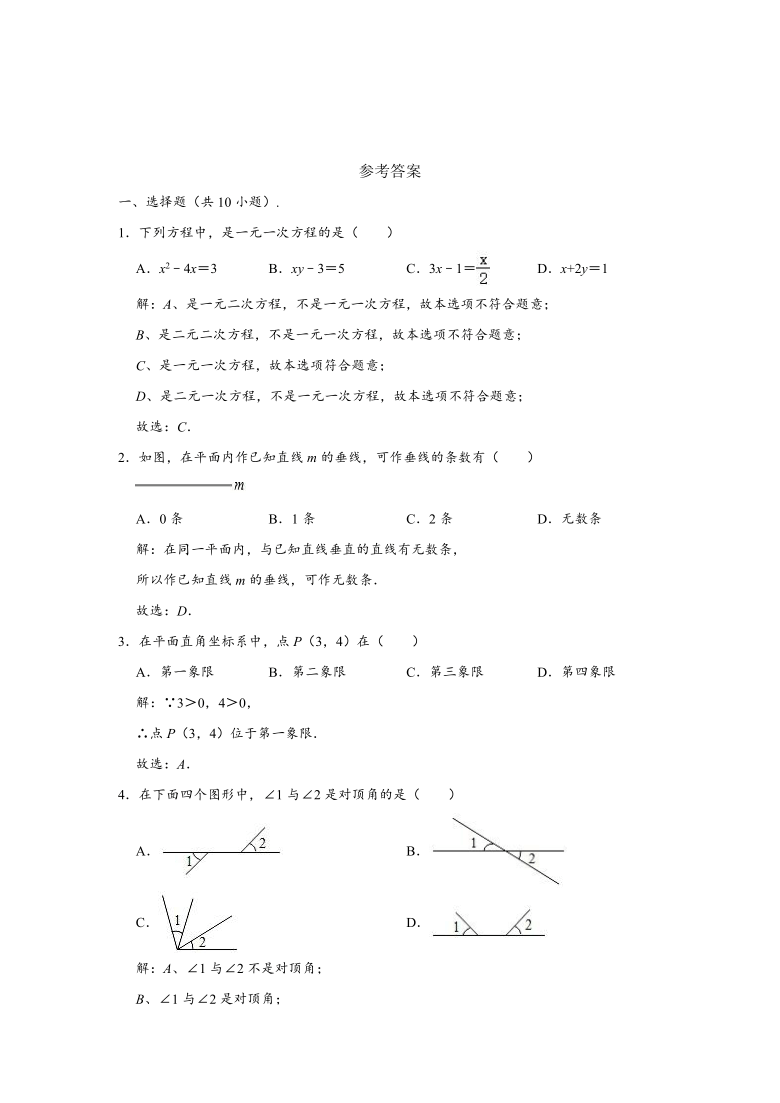 参考答案
一、选择题（共 10 小题）.
1．下列方程中，是一元一次方程的是（　　）
A．x²﹣4x＝3　B．xy﹣3＝5　C．3x﹣1＝x/2　D．x+2y＝1
解：A、是一元二次方程，不是一元一次方程，故本选项不符合题意；
B、是二元二次方程，不是一元一次方程，故本选项不符合题意；
C、是一元一次方程，故本选项符合题意；
D、是二元一次方程，不是一元一次方程，故本选项不符合题意；
故选：C．
2．如图，在平面内作已知直线 m 的垂线，可作垂线的条数有（　　）
m
A．0 条　B．1 条　C．2 条　D．无数条
解：在同一平面内，与已知直线垂直的直线有无数条，
所以作已知直线 m 的垂线，可作无数条．
故选：D．
3．在平面直角坐标系中，点 P（3，4）在（　　）
A．第一象限　B．第二象限　C．第三象限　D．第四象限
解：∵3＞0，4＞0，
∴点 P（3，4）位于第一象限．
故选：A．
4．在下面四个图形中，∠1 与∠2 是对顶角的是（　　）
A． 1 2　B． 1 2
C． 1 2　D． 1 2
解：A、∠1 与∠2 不是对顶角；
B、∠1 与∠2 是对顶角；